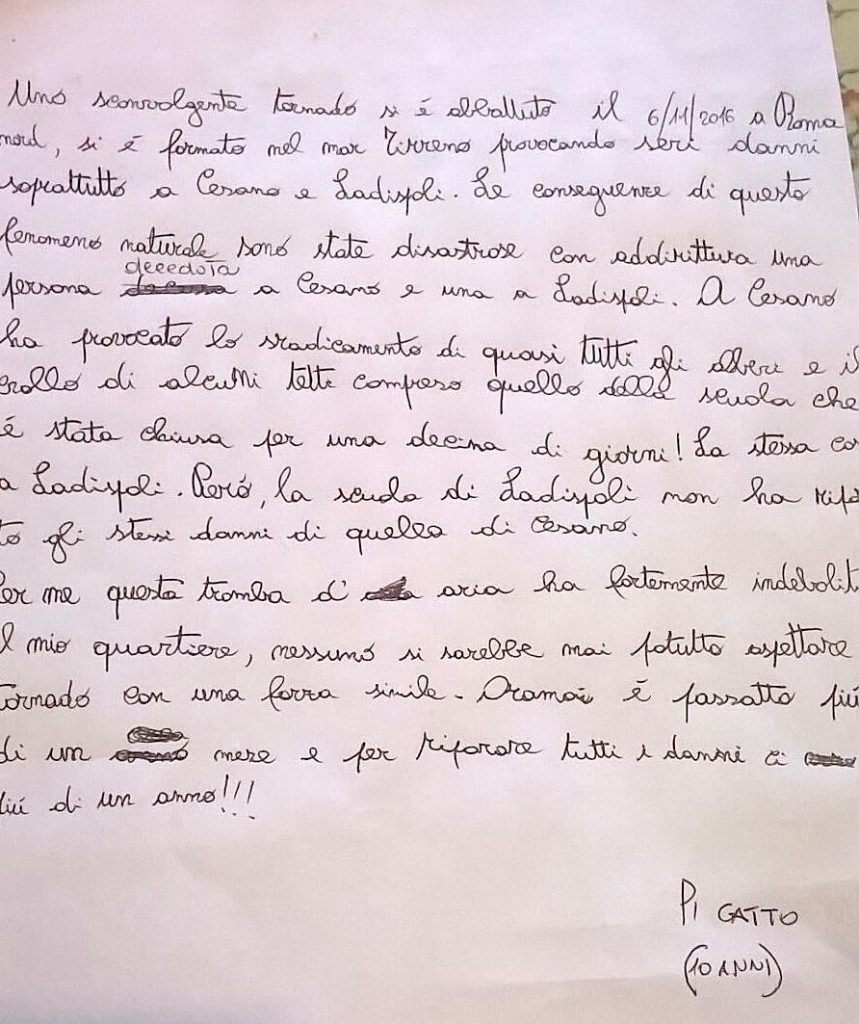 Uno sconvolgente tornado si é abballuto il 6/11/2016 a Roma
nord, si é formato nel mar Tirreno provocando seri danni
soprattutto a Cesano e Ladispoli. Le conseguenze di questo
fenomeno naturale sono state disastrose con addirittura una
persona deceduta a Cesano e una a Ladispoli. A Cesano
ha provocato lo sradicamento di quasi tutti gli alberi e il
crollo di alcuni tetti compreso quello della scuola che
é stata chiusa per una decina di giorni! La stessa co
a Ladispoli. Peró, la scuola di Ladispoli non ha ripo
to gli stessi danni di quella di Cesano.
Per me questa tromba d' aria ha fortemente indebolit
l mio quartiere, nessuno si sarebbe mai potutto aspettare
tornado con una forza simile. Oramai é passatto piú
di un mese e per riparare tutti i danni ci
piú di un anno!!!
PI GATTO
(10 ANNI)